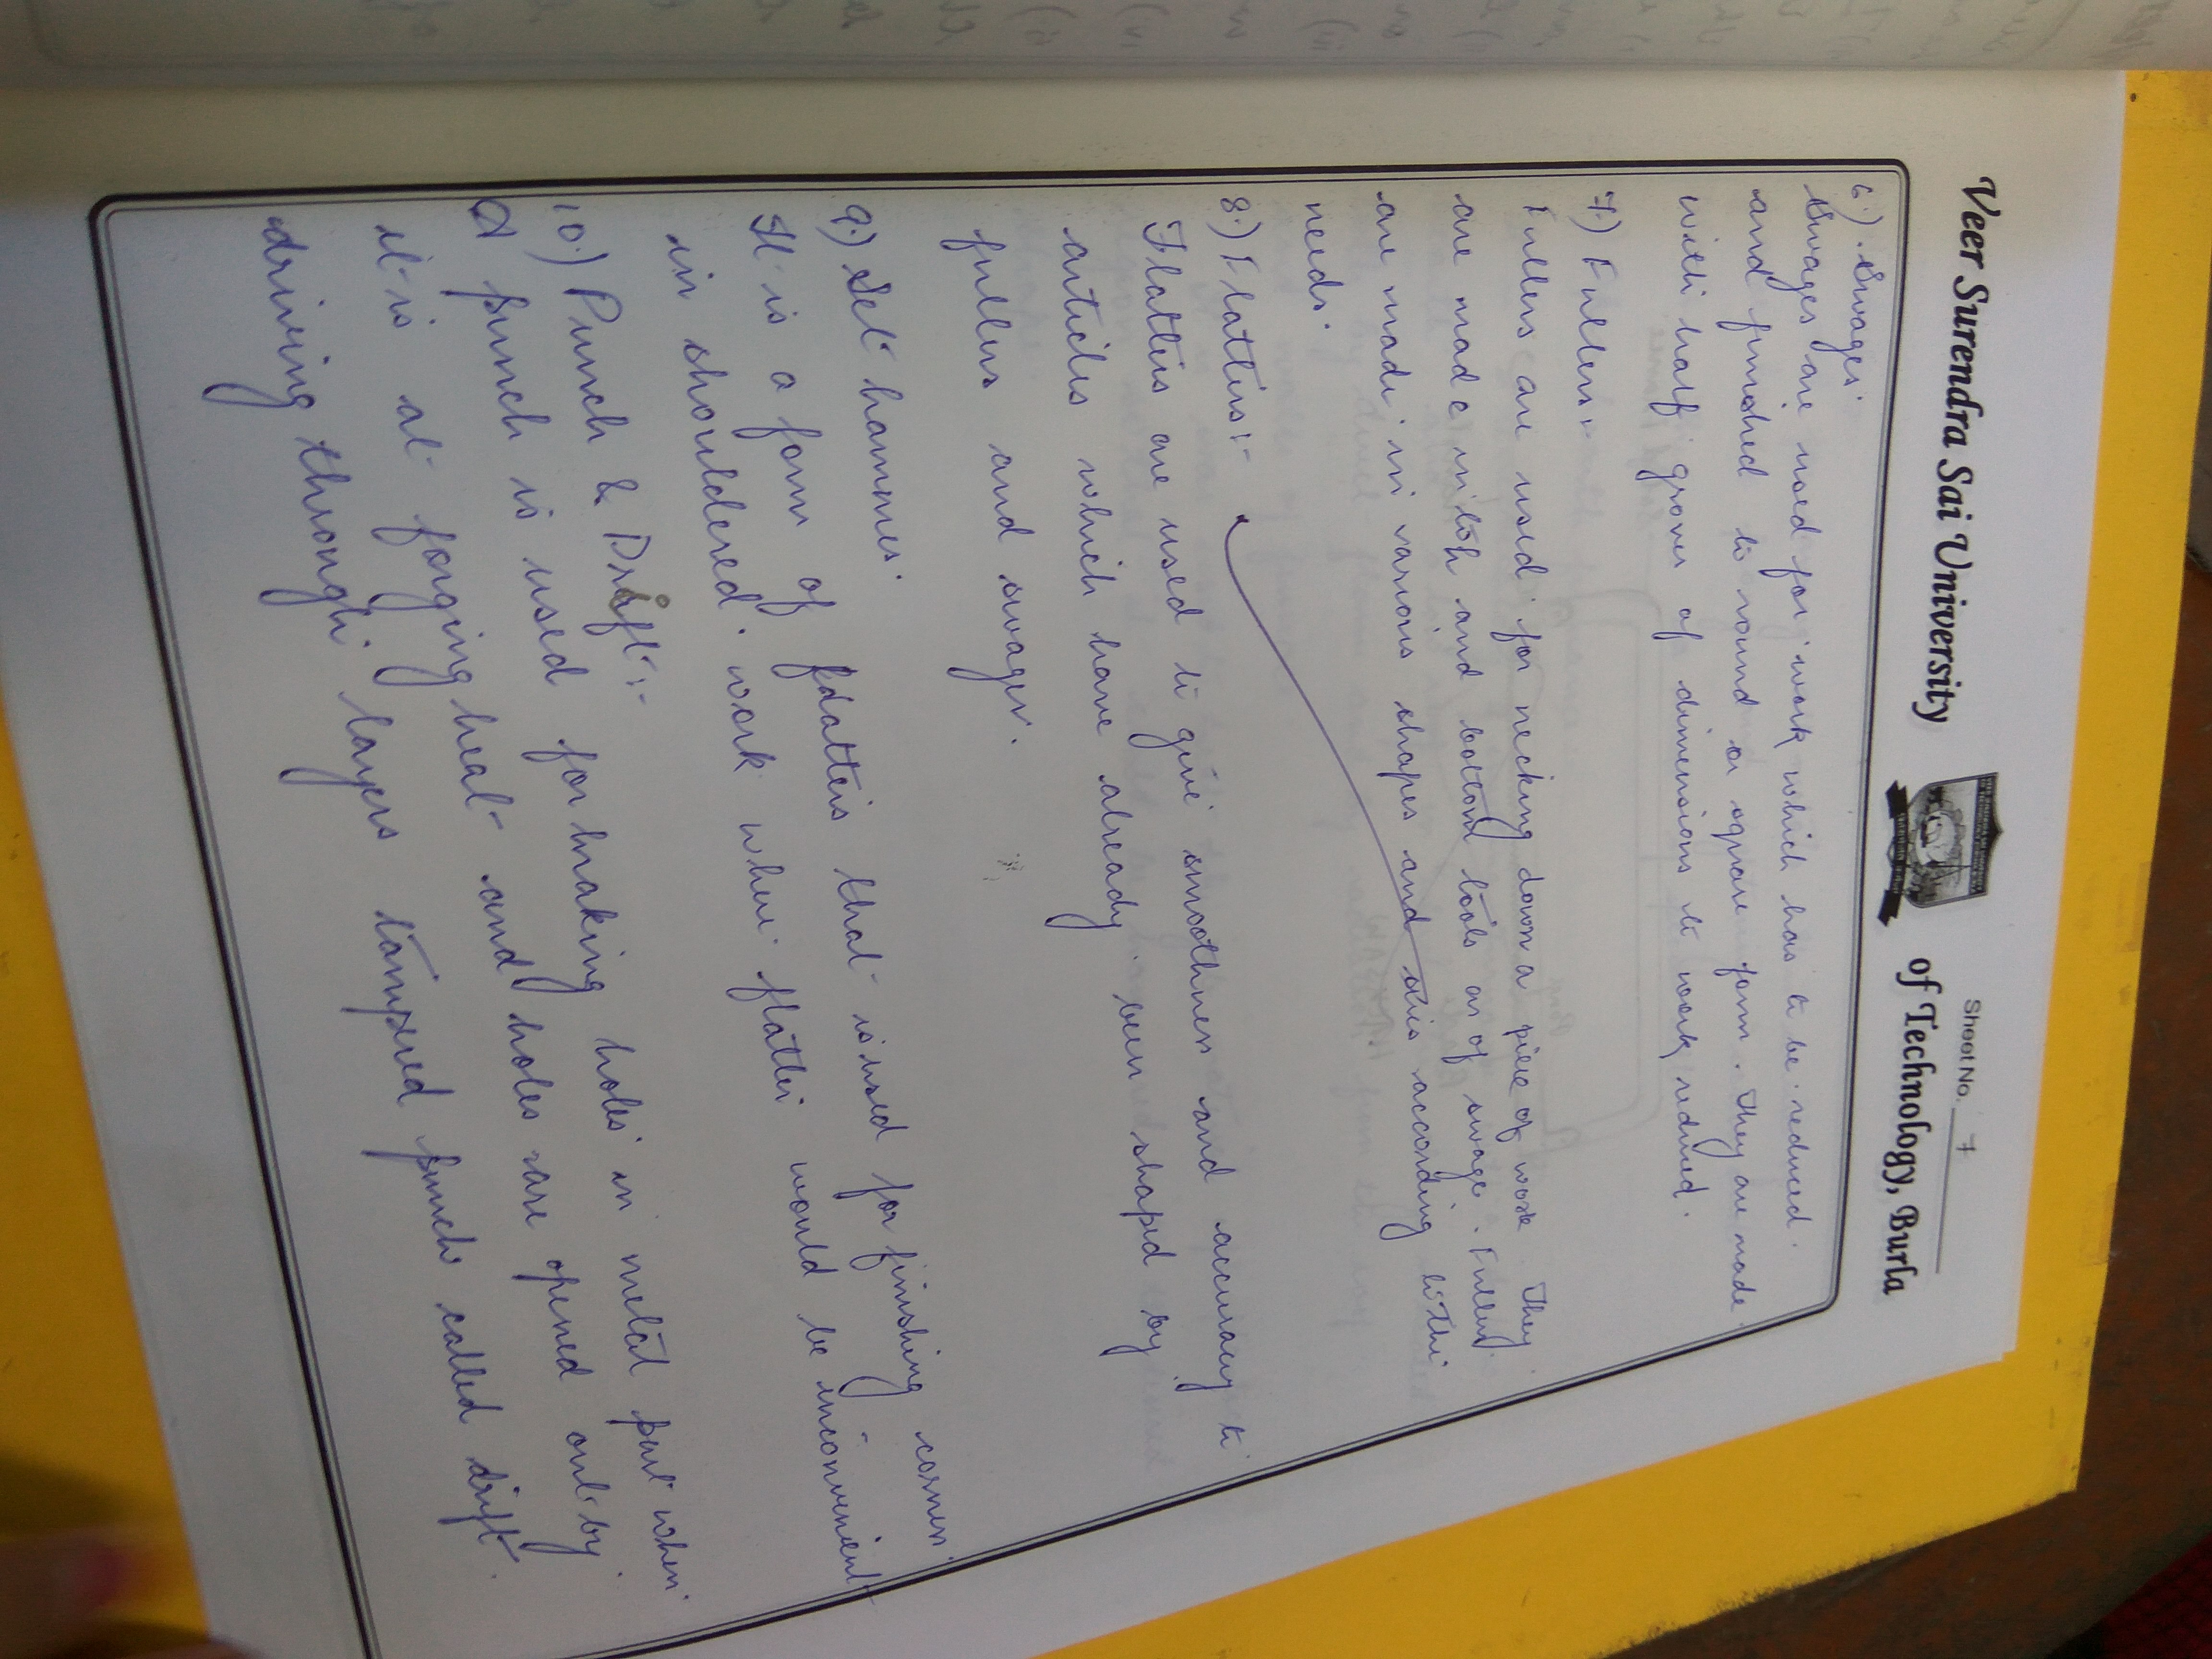 Sheet No. 7
Veer Surendra Sai University of Technology, Burla
6.) Swages:
Swages are used for work which has to be reduced.
and finished to round or square form. They are made
with half grooves of dimensions to work reduced.
7.) Fullers:-
Fullers are used for necking down a piece of work. They
are made in top and bottom tools as of swage. Fullers
are made in various shapes and size according to the
needs.
8.) Flatters:-
Flatters are used to give smoothness and accuracy to
articles which have already been shaped by
fullers and swages.
9.) Set hammer.
It is a form of flatters that is used for finishing corner.
in shouldered work where flatter would be inconvenient
10.) Punch & Drift:-
A punch is used for making holes in metal part when
it is at forging heat and holes are opened out by
driving through layers tampred punch called drift.